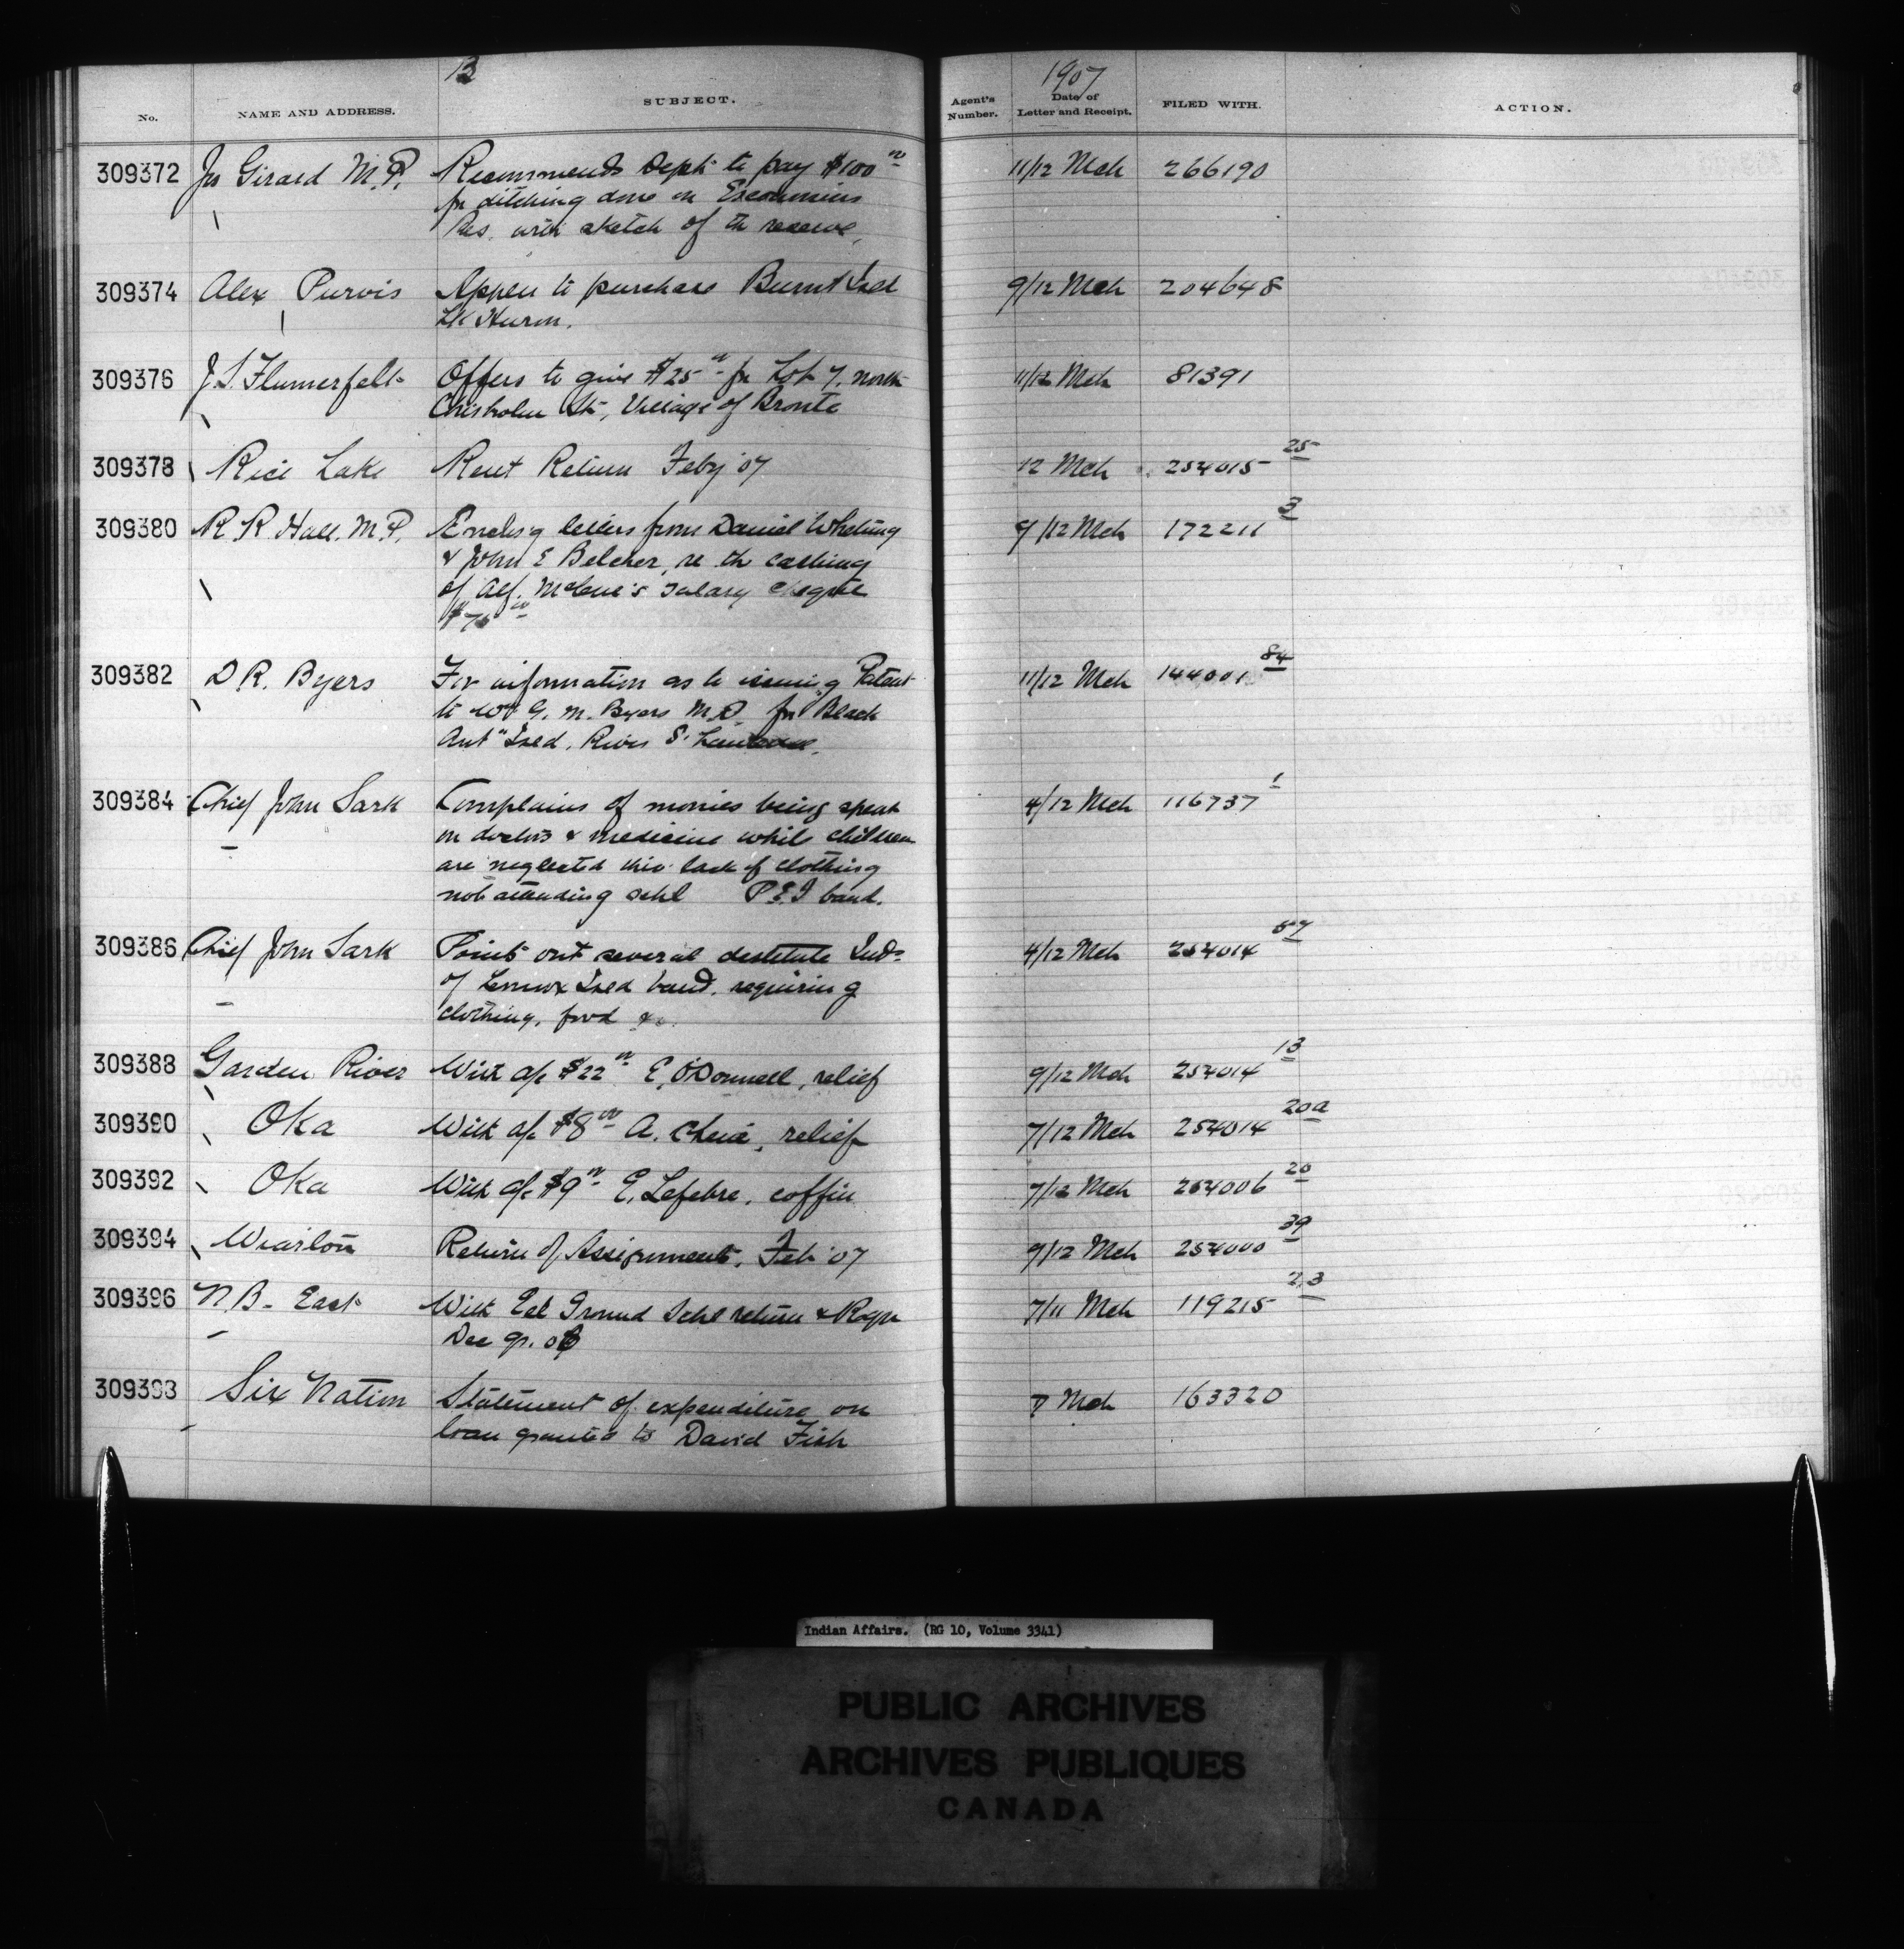 13
1907
No. NAME AND ADDRESS. SUBJECT. Agent's Number. Date of Letter and Receipt. FILED WITH. ACTION.
309372 Jos Girard M.P. Recommends Dept to pay $100 00 11/12 Mch 266190
for ditching done on Escoumins
Res. with sketch of the reserve.
309374 Alex Purvis Appln to purchase Burnt Isld 9/12 Mch 204648
Lk Huron.
309376 J.S. Flumerfelt Offers to give $25 00 for Lot 7, north 11/12 Mch 81391
Chisholm St, Village of Bronte
309378 Rice Lake Rent Return Feby '07 12 Mch 254015 25
309380 R R Hall. M.P. Enclsg letters from Daniel Whetung 9/12 Mch 172211 3
& John E Belcher, re the cashing
of Alf. McCue's salary cheque
$75 00
309382 D R. Byers For information as to issuing Patent 11/12 Mch 144001 84
to Wm G. M. Byers M.D. for "Black
Ant" Isld. River St Lawrence.
309384 Chief John Sark Complains of monies being spent 4/12 Mch 116737 1
on doctors & medicine while children
are neglected thro' lack of clothing
not attending schl P.E.I band.
309386 Chief John Sark Points out several destitute Inds 4/12 Mch 254014 57
of Lennox Isld band, requiring
clothing, food &c.
309388 Garden River With a/c $22 00 E. O'Donnell, relief 9/12 Mch 254014 13
309390 Oka With a/c $8 00 A. Chené, relief 7/12 Mch 254014 20a
309392 Oka With a/c $9 00 E. Lefebre, coffin 7/12 Mch 254006 20
309394 Wiarton Return of Assignments. Feb '07 9/12 Mch 254000 39
309396 N.B. East With Eel Ground Schl return & Rept 7/11 Mch 119215 23
Dec qr. 06
309398 Six Nation Statement of expenditure on 7 Mch 163320
loan granted to David Fish
Indian Affairs. (RG 10, Volume 3341)
PUBLIC ARCHIVES
ARCHIVES PUBLIQUES
CANADA